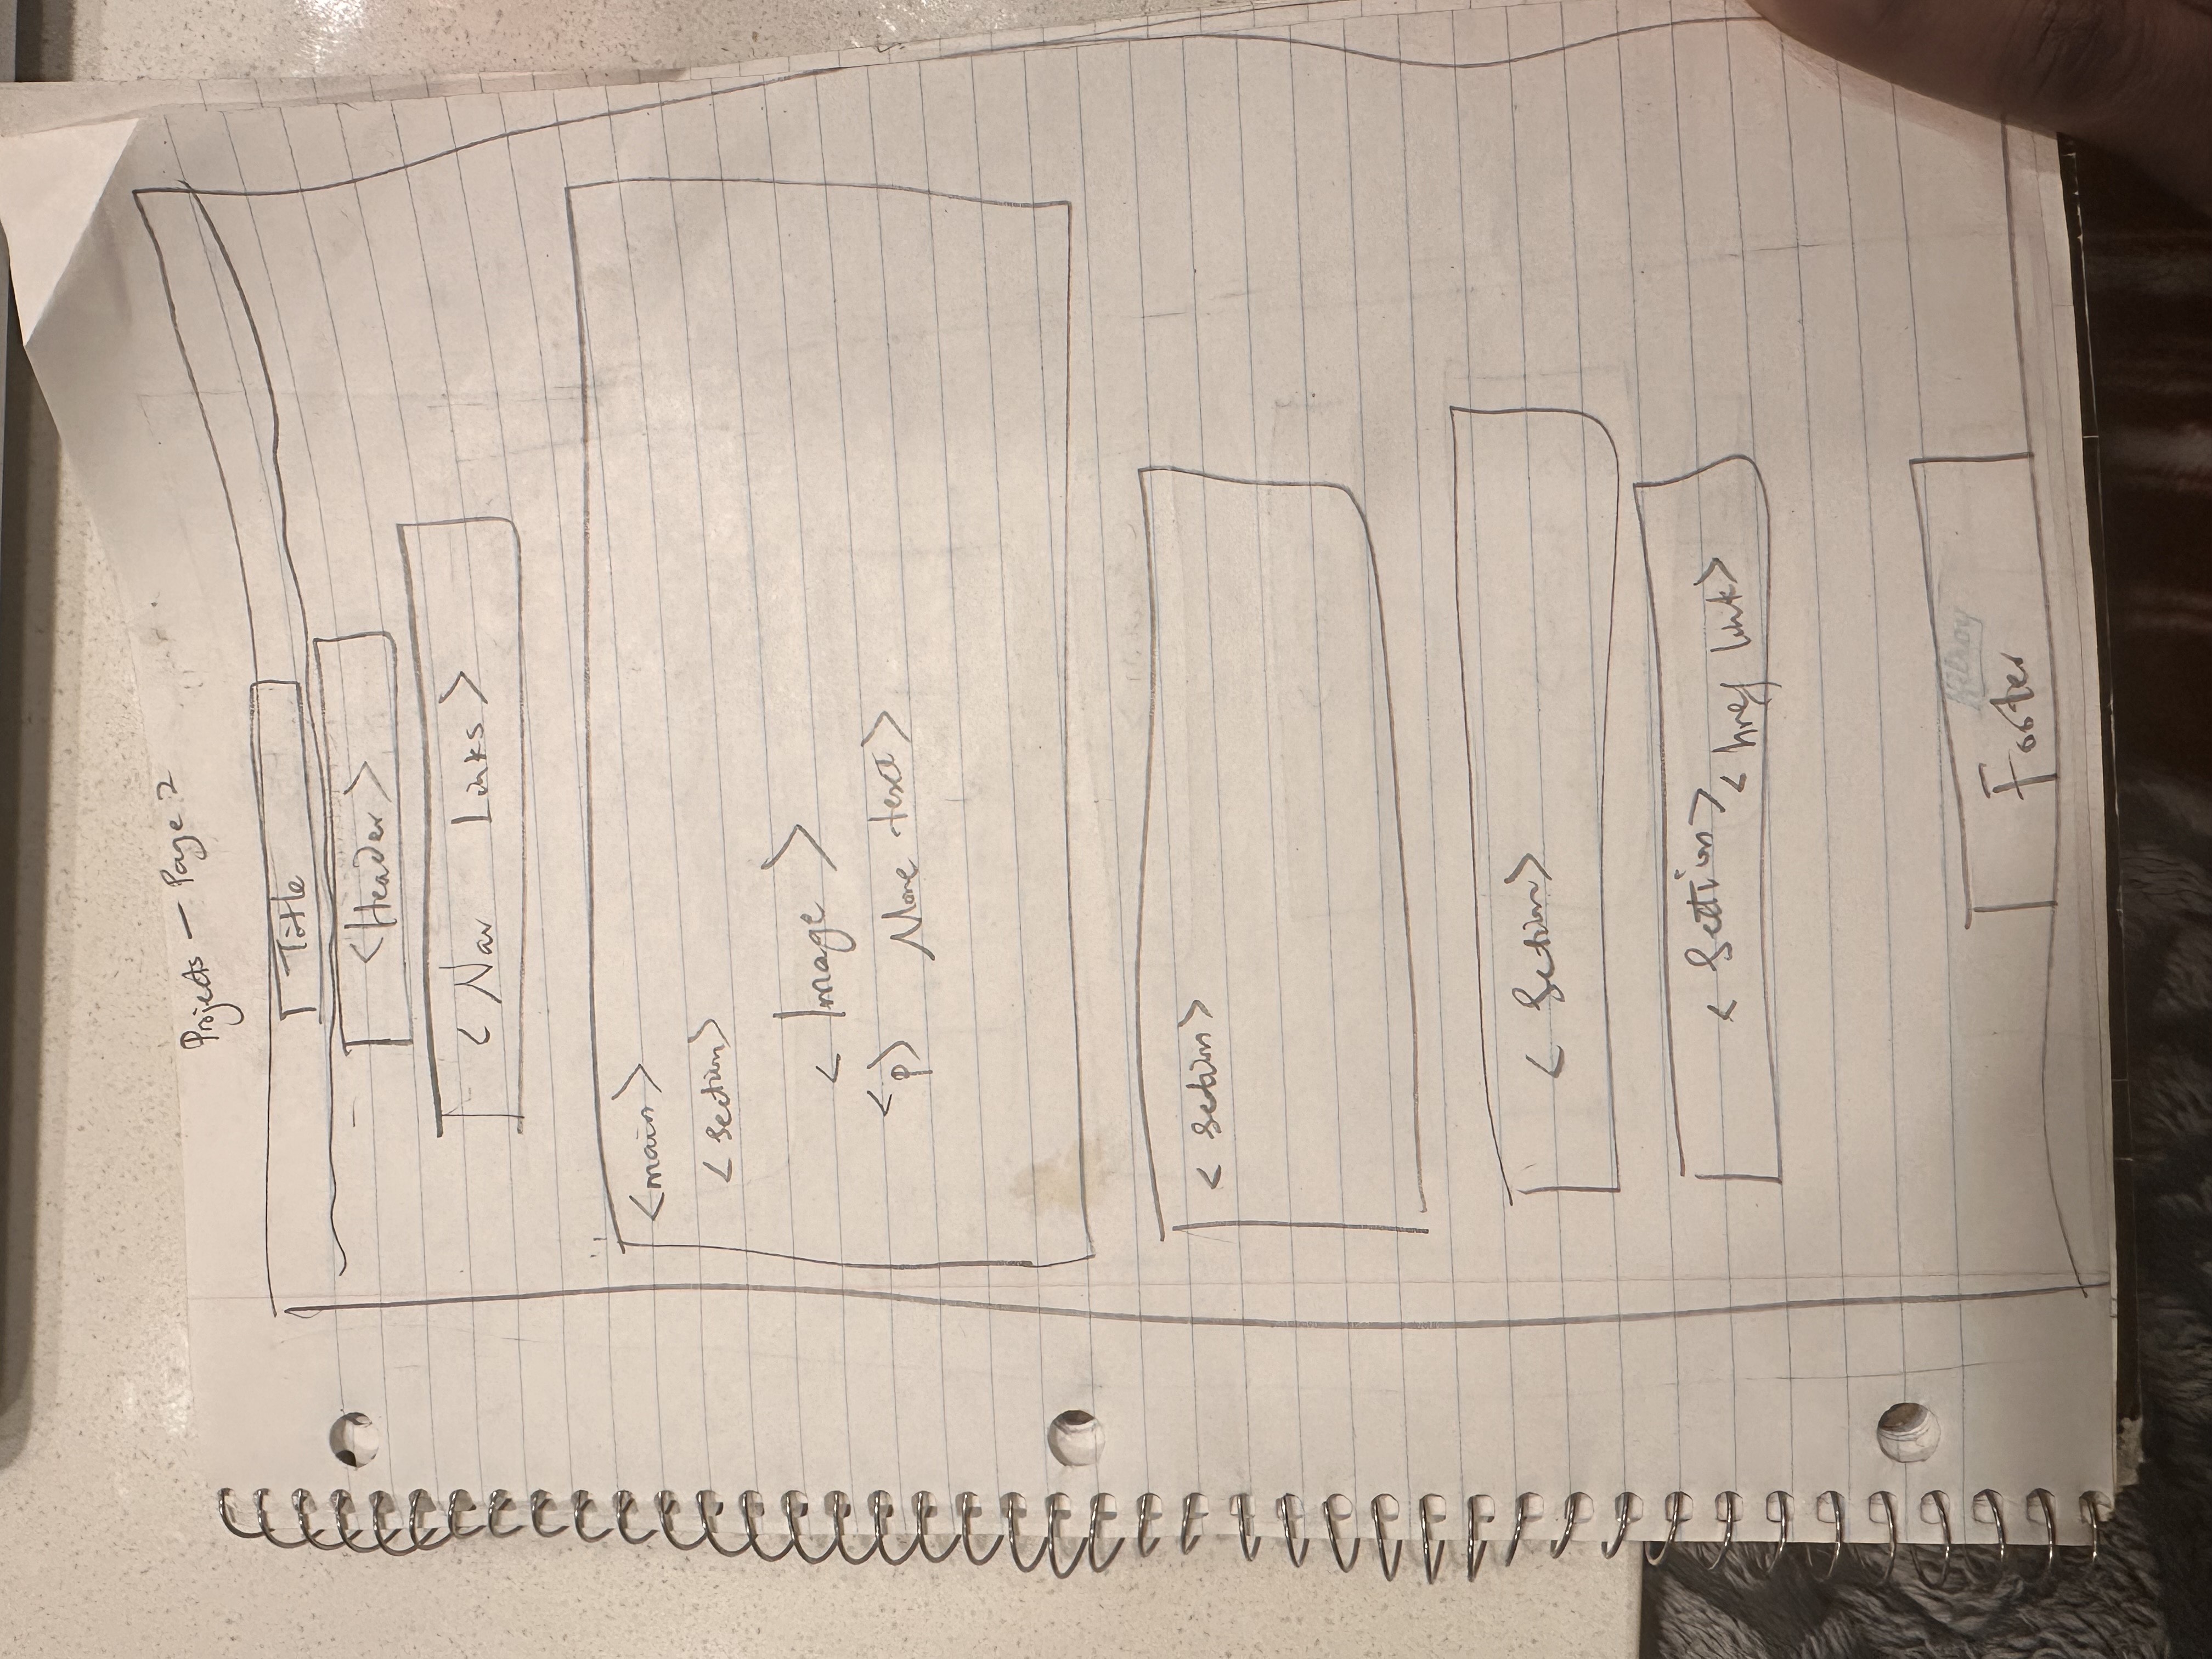 Projects — Page 2
Title
<Header>
<Nav Links>
<main>
<section>
<Image>
<p> More text>
<section>
<Section>
<Section>
<href link>
Footer
Hilroy